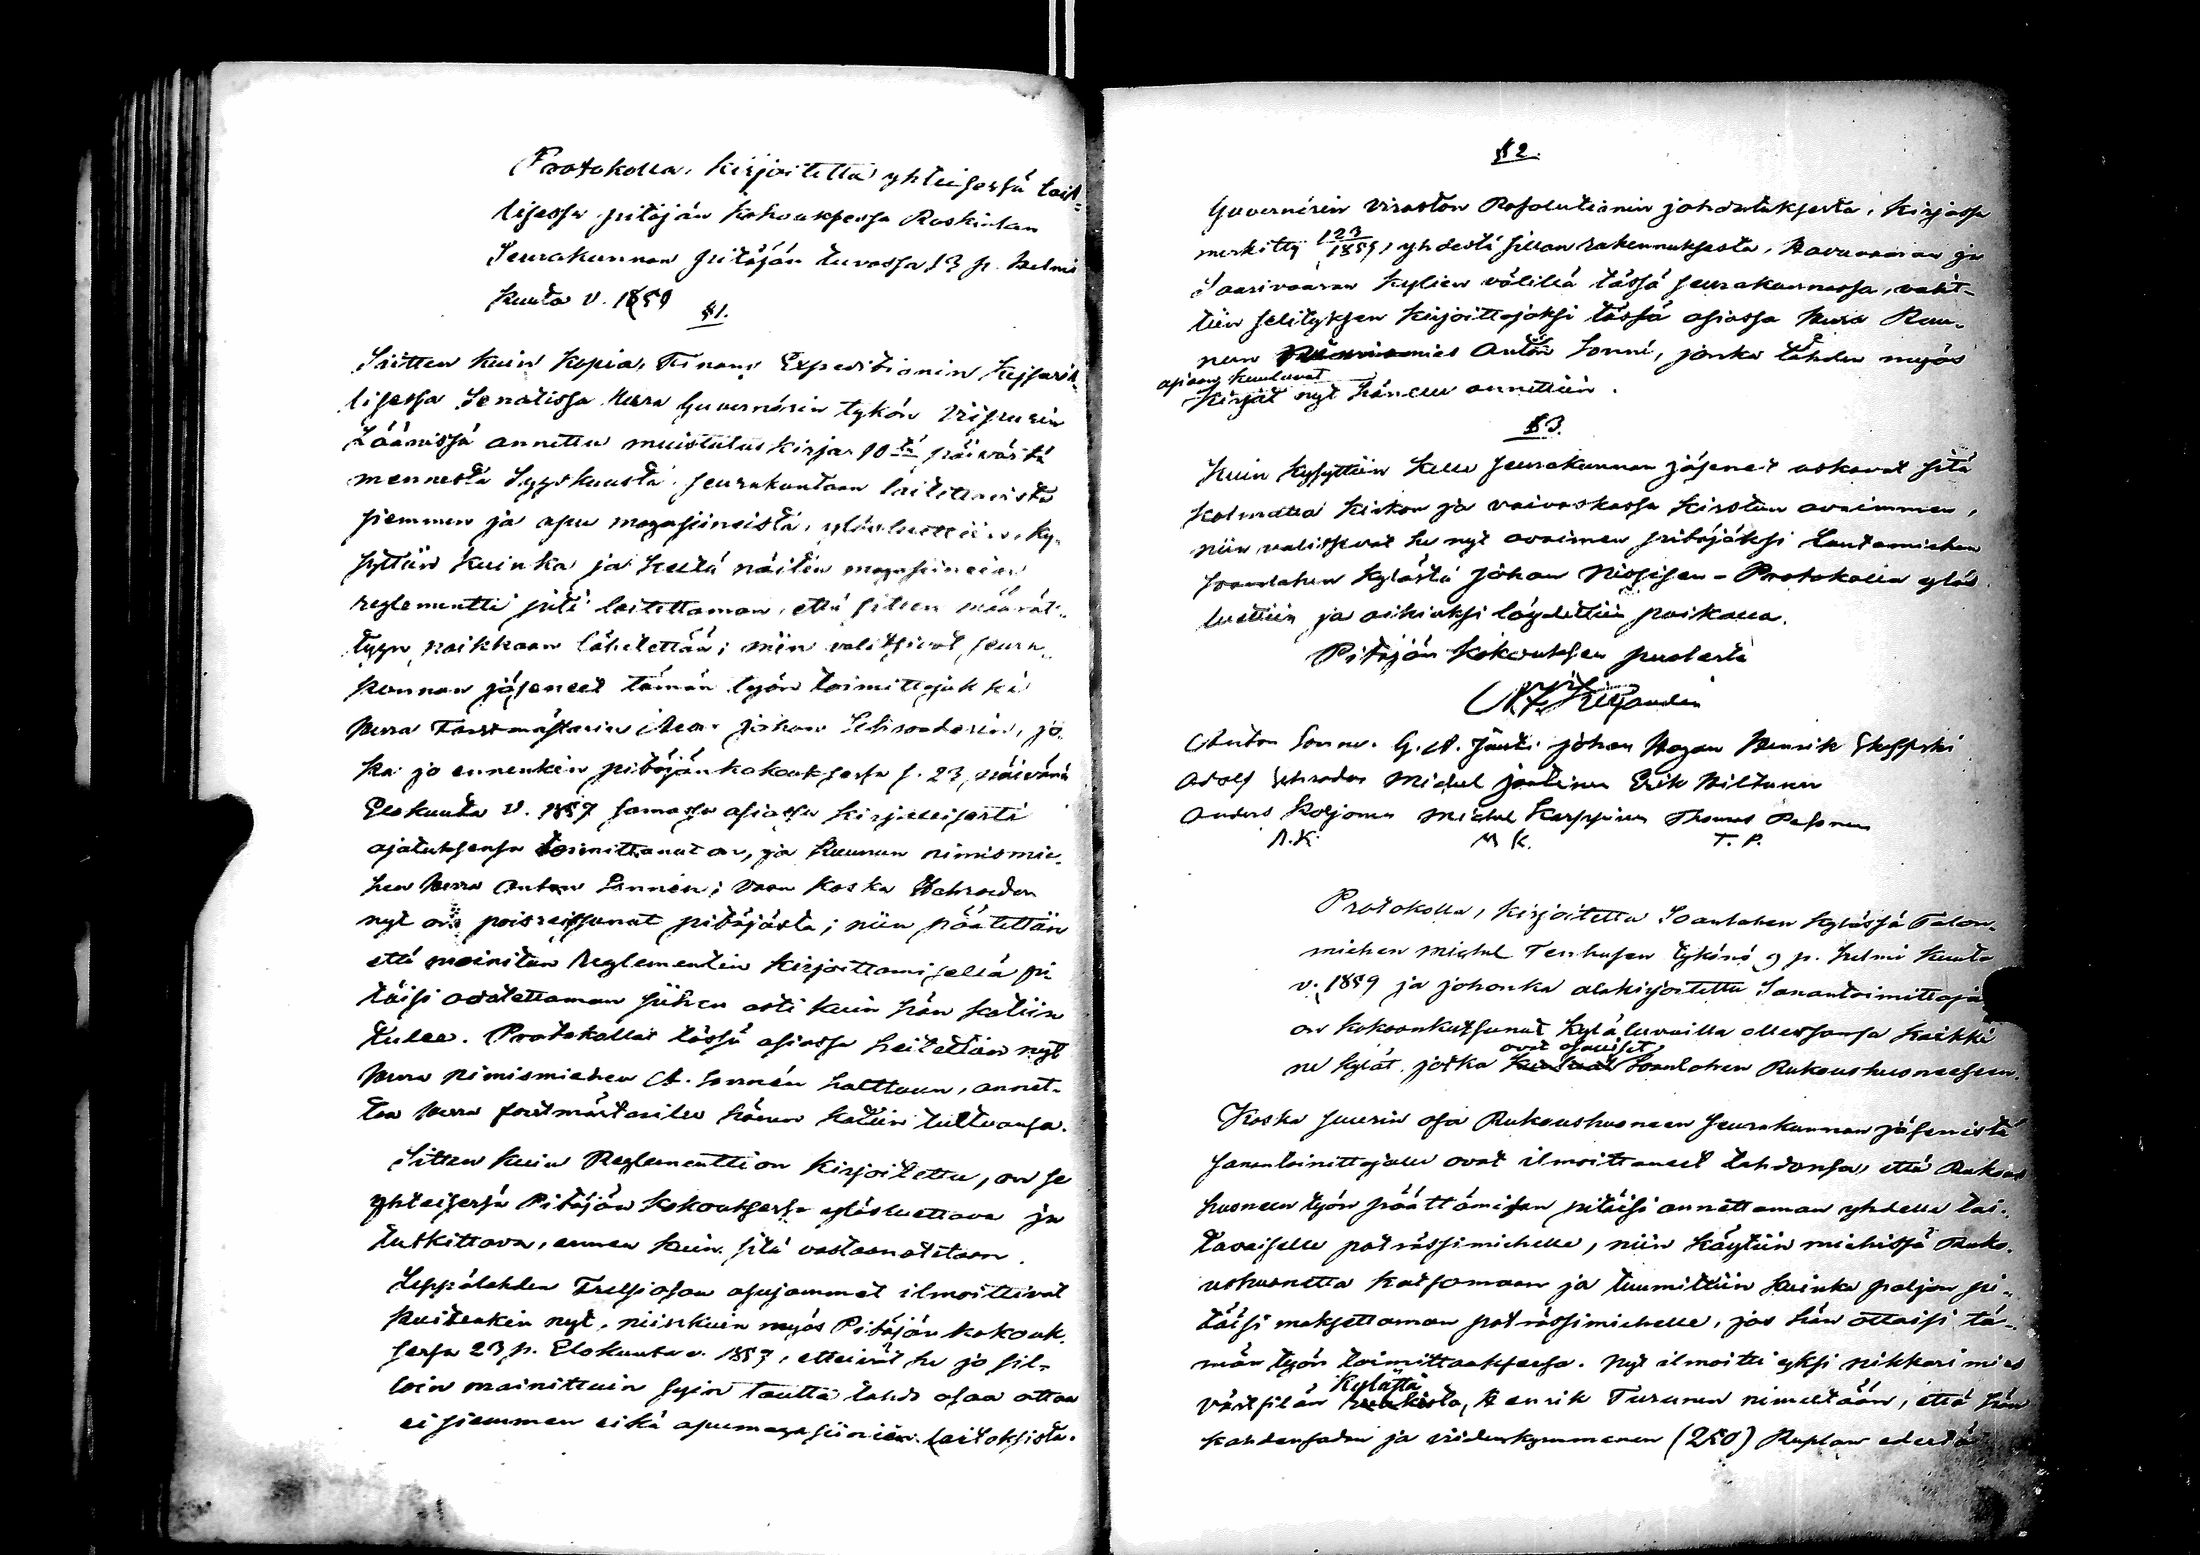 Protokolla, kirjoitettu yhteisessä lail-
lisessa pitäjän kokouksessa Ruskialan
Seurakunnan pitäjän tuvassa 13 p. Helmi
kuuta v. 1859
§ 1.
Sitten kuin kopia, Finans Expeditionin Kejsaril-
lisessa Senatissa Herra Guvernörin tykön Viipurin
Läänissä annettu muistutus kirja 10tä päivästä
mennestä Syyskuusta seurakuntaan laitettavista
siemmen ja apu magasineista, ylösluettiin, ky-
syttiin kuinka ja keltä näitin magasineein
reglementti piti laitettaman, että sitten määrät-
tyyn paikkaan lähetettää; niin valitsivat seura-
kunnan jäseneet tämän työn toimittajaksi
Herra Forstmästarin Johan Schroderin, jo-
ka jo ennenkin pitäjänkokouksessa s. 23 päivänä
Elokuuta v. 1857 samassa asiassa kirjallisesti
ajatuksensa toimittanut on, ja Kuunun nimismie-
hen Herra Anton Sonnén; vaan koska Schroeder
nyt on poisreissunut pitäjästä; niin päätettiin
että mainitun Reglementin kirjoittamisella pi
täisi odotettaman siihen asti kuin hän kotiin
tulee. Protokollat tässä asiassa heitettiin nyt
Herra Nimismiehen A. Sonnén halttuun, annet-
taa Herra forstmästarille hänen kotiin tultuansa.
Sitten kuin Reglementti on kirjoitettu, on se
yhteisessä Pitäjän kokouksessa ylösluettava ja
tutkittava, ennen kuin sitä vastaanotetaan.
Leppälahden Frelsiosan asujammet ilmoittivat
kuitenkin nyt, niinkuin myös Pitäjän kokouk-
sessa 23 p. Elokuuta v. 1857, etteivät he jo sil-
loin mainittuin syin tautta tahdo osaa ottaa
ei siemmen eikä apumagasiinien laitoksista.
§ 2.
Guvernörin Viraston Resolutionin johdatuksesta, kirjassa
merkitty 123/1859, yhdestä sillan rakennuksesta, Havuvaaran ja
Saarivaaran kylien välillä tässä seurakunnassa, valit-
tiin selityksen kirjoittajaksi tässä asiassa Herra Ruu-
nun Nimismies Anton Sonné, jonka tähden myös
asiaan kuuluvat
kirjat nyt hänelle annettiin.
§ 3.
Kuin kysyttiin kelle seurakunnan jäseneet uskovat sitä
kolmatta kirkon ja vaivaskassa kirstun avaimmen,
niin valitsevat he nyt avaimen pitäjäksi Lautamiehen
Soanlahen kylästä Johan Nissisen - Protokolla ylös
luettiin ja oikiaksi löydettiin paikalla.
Pitäjän kokouksen puolesta
Anton Sonné. G. A. Jänti Johan Hagan Henrik
Adolf Schroder Michel Juutinen Erik Hiltunen
Anders Koljonen Michel Karppinen Thomas Pesonen
A. K. M K. T. P.
Protokolla, kirjoitettu Soanlahen kylässä Talon-
miehen Michel Terhusen tykönä 9 p. Helmi kuuta
v. 1859 ja johonka alakirjoitettu Sanantoimittaja
on kokoonkutsunut kyläluvuilla ollessansa kaikki
ovat osaliset
ne kylät, jotka kuuluvat Soanlahen Rukoushuoneeseen.
Koska suurin osa Rukoushuoneen seurakunnan jäsenistä
sanantoimittajalle ovat ilmoittaneet tahdonsa, että Rukous
huoneen työn päättämisen pitäisi annettaman yhdelle tai-
tavaiselle paträssimiehelle, niin käytiin miehissä Ruko-
ushuonetta katsomaan ja tuumittiin kuinka paljon pi-
täisi maksettaman paträssimiehelle, jos hän ottaisi tä-
män työn toimittaaksensa. Nyt ilmoitti yksi nikkari mies
kylästä
Värtsilän ruukista, Henrik Turunen nimeltään, että hän
kahdensadan ja viidenkymmenen (250) Ruplan edestä